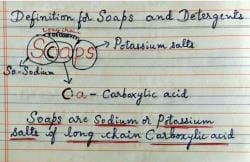 Definition for Soaps and Detergents
Long chain
Soaps
Potassium salts
So-Sodium
C-a - Carboxylic acid
Soaps are Sodium or Potassium
salts of long chain Carboxylic acid